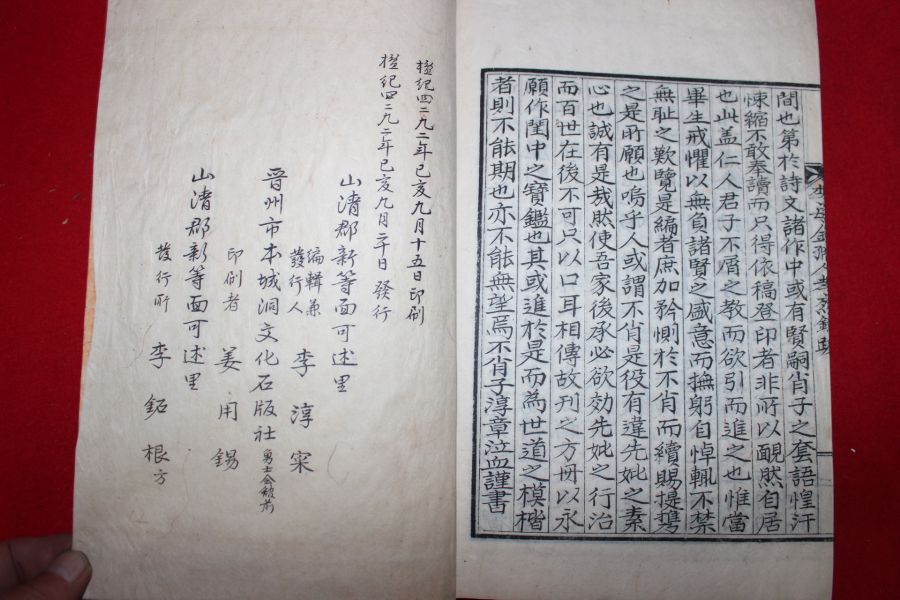 間也第於詩文諸作中或有賢嗣肖子之套語惶汗
悚縮不敢奉讀而只得依稿登印者非所以靦然自居
也此盖仁人君子不屑之教而欲引而進之也惟當
畢生戒懼以無負諸賢之盛意而撫躬自悼輒不禁
無耻之歎覽是編者庶加矜惻於不肖而續賜提
之是所願也嗚乎人或謂不肖是役有違先妣之素
心也誠有是哉然使吾家後承必欲効先妣之行治
而百世在後不可只以口耳相傳故刊之方冊以永
願作閨中之寶鑑也其或進於是而為世道之模楷
者則不能期也亦不能無望焉不肖子淳章泣血謹書
檀紀四二九二年己亥九月十五日印刷
檀紀四二九二年己亥九月二十日發行
山淸郡新等面可述里
編輯兼發行人 李淳寀
晉州市本城洞文化石版社 勇士会舘前
印刷者 姜用錫
山淸郡新等面可述里
發行所 李鉐根方